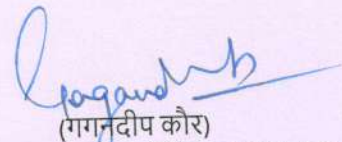 (गगनदीप कौर)